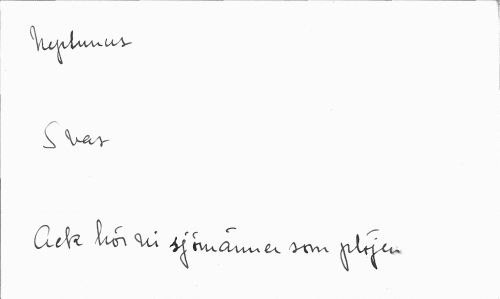 Neptunus
Svar
Ack hör ni sjömänner som plöjen